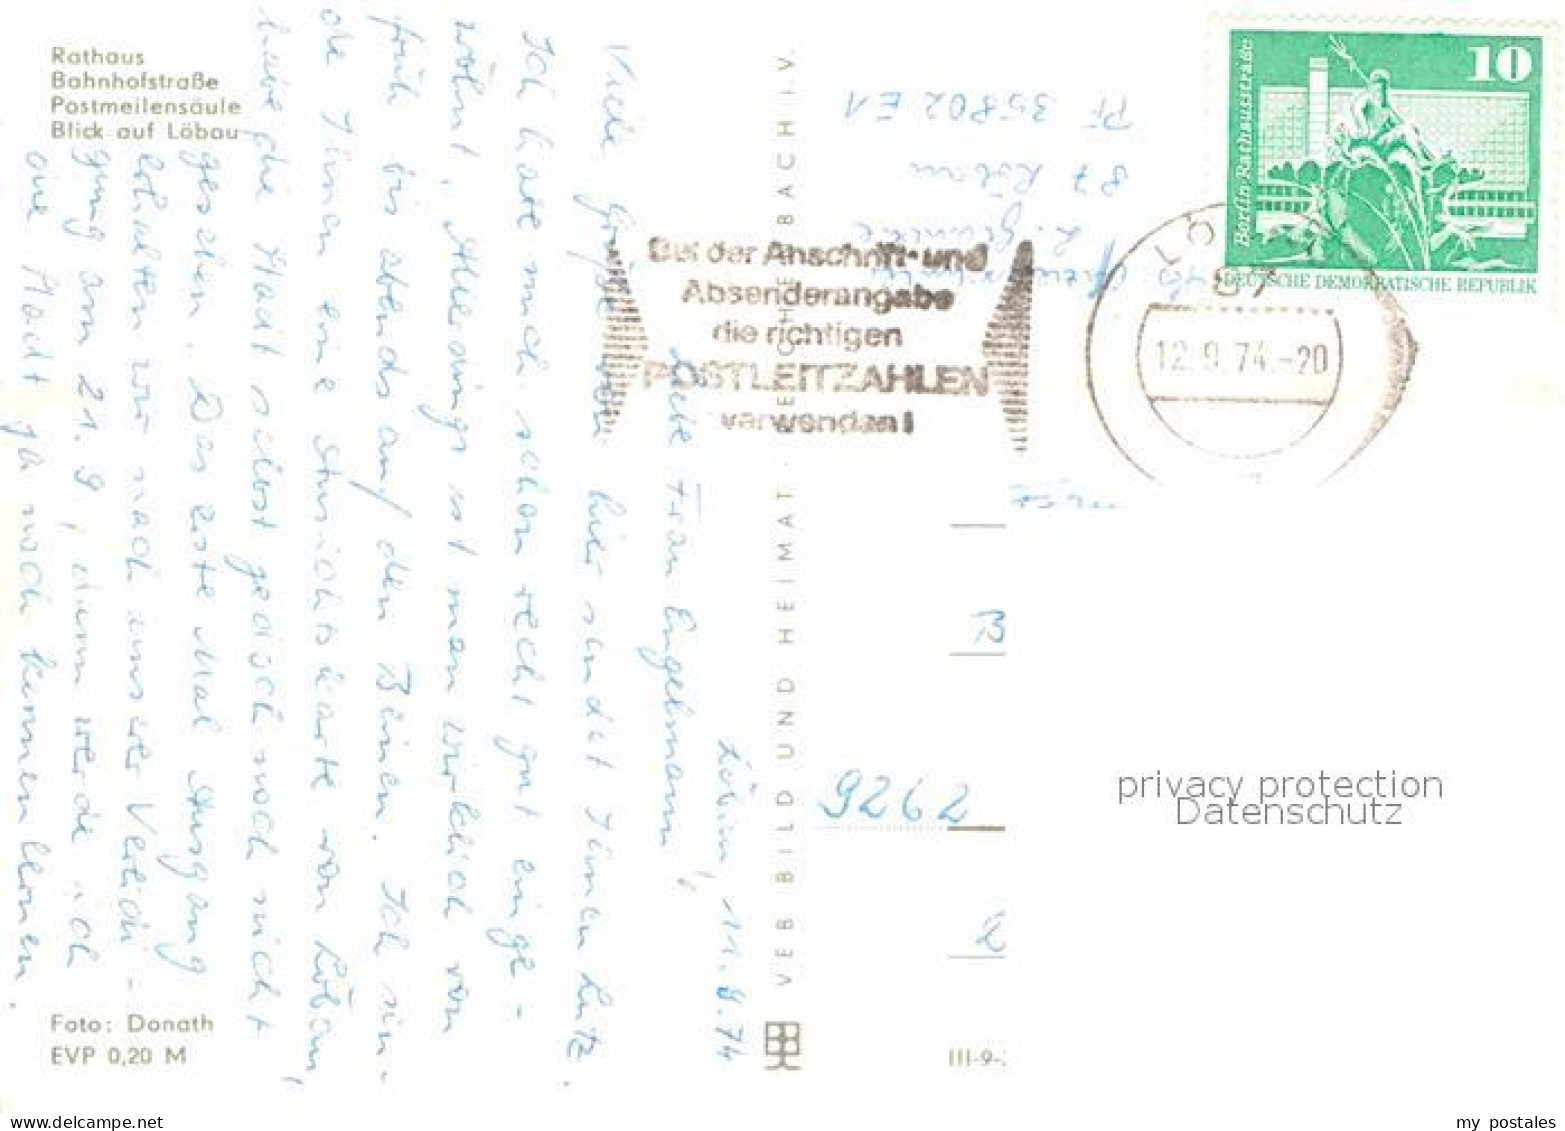 Rathaus
Bahnhofstraße
Postmeilensäule
Blick auf Löbau
Löbau, 11.9.74
Liebe Frau Engelmann!
Viele Grüße von hier sendet Ihnen Lutz.
Ich habe mich schon recht gut einge-
wöhnt. Allerdings ist man wirklich von
früh bis abends auf den Beinen. Ich sen-
de Ihnen eine Ansichtskarte von Löbau,
habe die Stadt selbst jedoch noch nicht
gesehen. Das erste Mal Ausgang
erhalten wir nach unserer Vereidi-
gung am 21.9., dann werde ich
die Stadt ja noch kennenlernen.
Foto: Donath
EVP 0,20 M
VEB BILD UND HEIMAT REICHENBACH I.V.
III-9-
PF 35802 E1
87 Löbau
Bei der Anschrift- und
Absenderangabe
die richtigen
POSTLEITZAHLEN
verwenden!
LÖ
87
12.9.74.-20
10
Berlin-Rathausstraße
DEUTSCHE DEMOKRATISCHE REPUBLIK
9262
privacy protection
Datenschutz
my postales